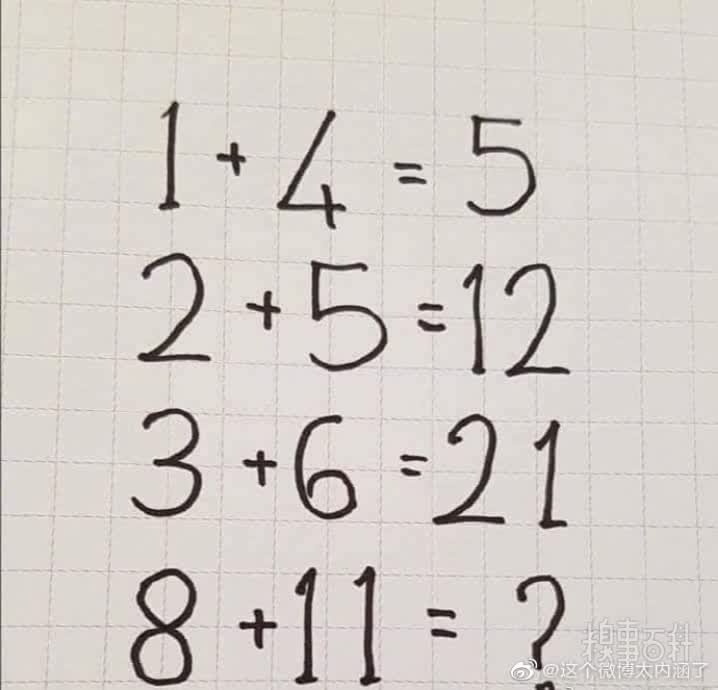 1 + 4 = 5
2 + 5 = 12
3 + 6 = 21
8 + 11 = ?
糗事百科
@这个微博太内涵了